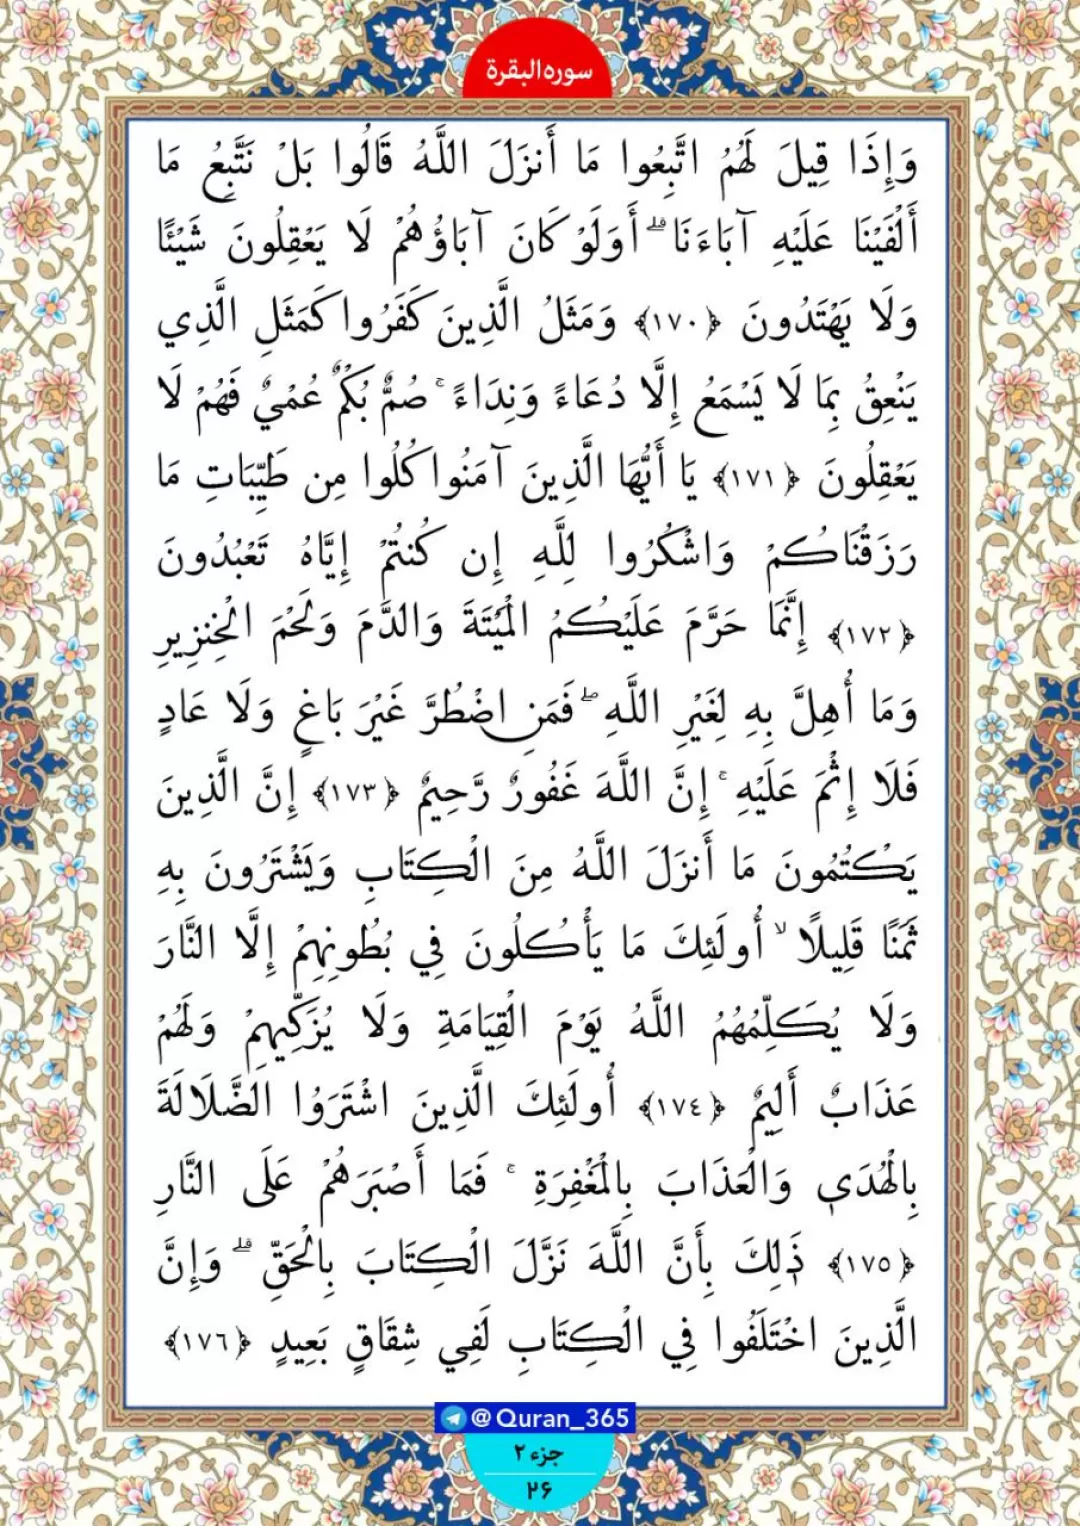 سوره البقرة
وَإِذَا قِيلَ لَهُمُ اتَّبِعُوا مَا أَنزَلَ اللَّهُ قَالُوا بَلْ نَتَّبِعُ مَا
أَلْفَيْنَا عَلَيْهِ آبَاءَنَا ۗ أَوَلَوْ كَانَ آبَاؤُهُمْ لَا يَعْقِلُونَ شَيْئًا
وَلَا يَهْتَدُونَ ﴿١٧٠﴾ وَمَثَلُ الَّذِينَ كَفَرُوا كَمَثَلِ الَّذِي
يَنْعِقُ بِمَا لَا يَسْمَعُ إِلَّا دُعَاءً وَنِدَاءً ۚ صُمٌّ بُكْمٌ عُمْيٌ فَهُمْ لَا
يَعْقِلُونَ ﴿١٧١﴾ يَا أَيُّهَا الَّذِينَ آمَنُوا كُلُوا مِن طَيِّبَاتِ مَا
رَزَقْنَاكُمْ وَاشْكُرُوا لِلَّهِ إِن كُنتُمْ إِيَّاهُ تَعْبُدُونَ
﴿١٧٢﴾ إِنَّمَا حَرَّمَ عَلَيْكُمُ الْمَيْتَةَ وَالدَّمَ وَلَحْمَ الْخِنزِيرِ
وَمَا أُهِلَّ بِهِ لِغَيْرِ اللَّهِ ۖ فَمَنِ اضْطُرَّ غَيْرَ بَاغٍ وَلَا عَادٍ
فَلَا إِثْمَ عَلَيْهِ ۚ إِنَّ اللَّهَ غَفُورٌ رَّحِيمٌ ﴿١٧٣﴾ إِنَّ الَّذِينَ
يَكْتُمُونَ مَا أَنزَلَ اللَّهُ مِنَ الْكِتَابِ وَيَشْتَرُونَ بِهِ
ثَمَنًا قَلِيلًا ۙ أُولَئِكَ مَا يَأْكُلُونَ فِي بُطُونِهِمْ إِلَّا النَّارَ
وَلَا يُكَلِّمُهُمُ اللَّهُ يَوْمَ الْقِيَامَةِ وَلَا يُزَكِّيهِمْ وَلَهُمْ
عَذَابٌ أَلِيمٌ ﴿١٧٤﴾ أُولَئِكَ الَّذِينَ اشْتَرَوُا الضَّلَالَةَ
بِالْهُدَى وَالْعَذَابَ بِالْمَغْفِرَةِ ۚ فَمَا أَصْبَرَهُمْ عَلَى النَّارِ
﴿١٧٥﴾ ذَلِكَ بِأَنَّ اللَّهَ نَزَّلَ الْكِتَابَ بِالْحَقِّ ۗ وَإِنَّ
الَّذِينَ اخْتَلَفُوا فِي الْكِتَابِ لَفِي شِقَاقٍ بَعِيدٍ ﴿١٧٦﴾
@Quran_365
جزء ۲
۲۶